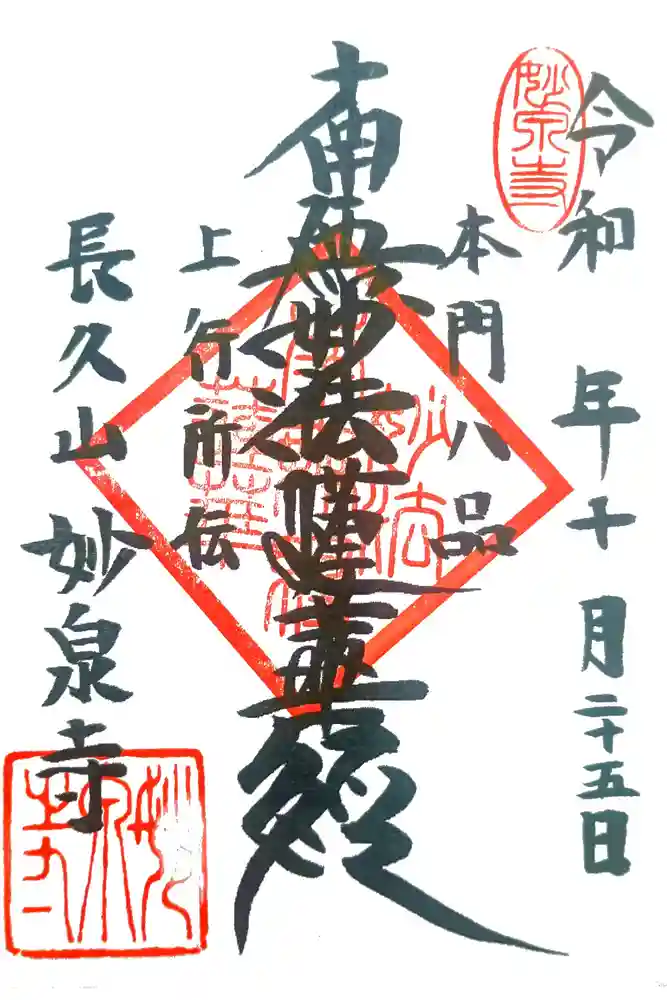 令和 年十月二十五日
妙泉寺
本門八品
南無妙法蓮華經
上行所伝
長久山 妙泉寺